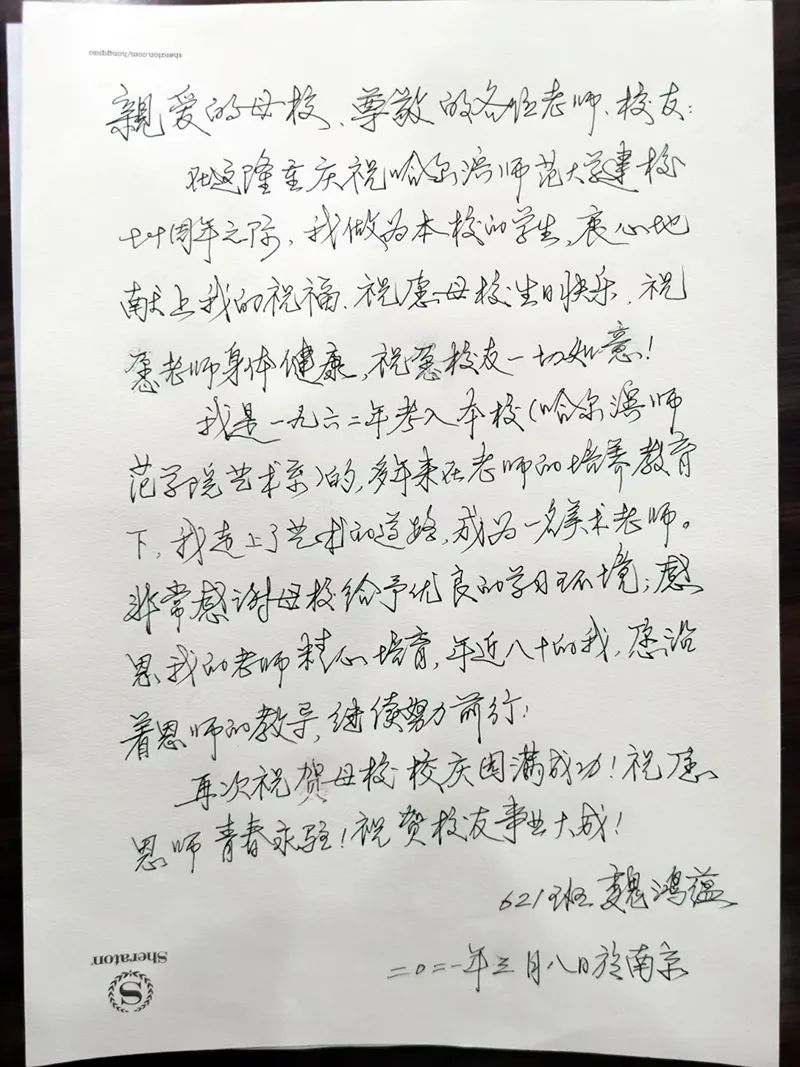 sheraton.com/hongqiao
親爱的母校、尊敬的各位老师、校友：
在这隆重庆祝哈尔滨师范大学建校
七十周年之际，我做为本校的学生，衷心地
献上我的祝福、祝愿母校生日快乐，祝
愿老师身体健康，祝愿校友一切如意！
我是一九六二年考入本校（哈尔滨师
范学院艺术系）的，多年来在老师的培养教育
下，我走上了艺术的道路，成为一名美术老师。
非常感谢母校给予优良的学习环境；感
恩我的老师精心培育，年近八十的我，愿沿
着恩师的教导，继续努力前行！
再次祝贺母校校庆圆满成功！祝愿
恩师青春永驻！祝贺校友事业大成！
621班 魏鸿蕴
二〇二一年三月八日於南京
Sheraton
S